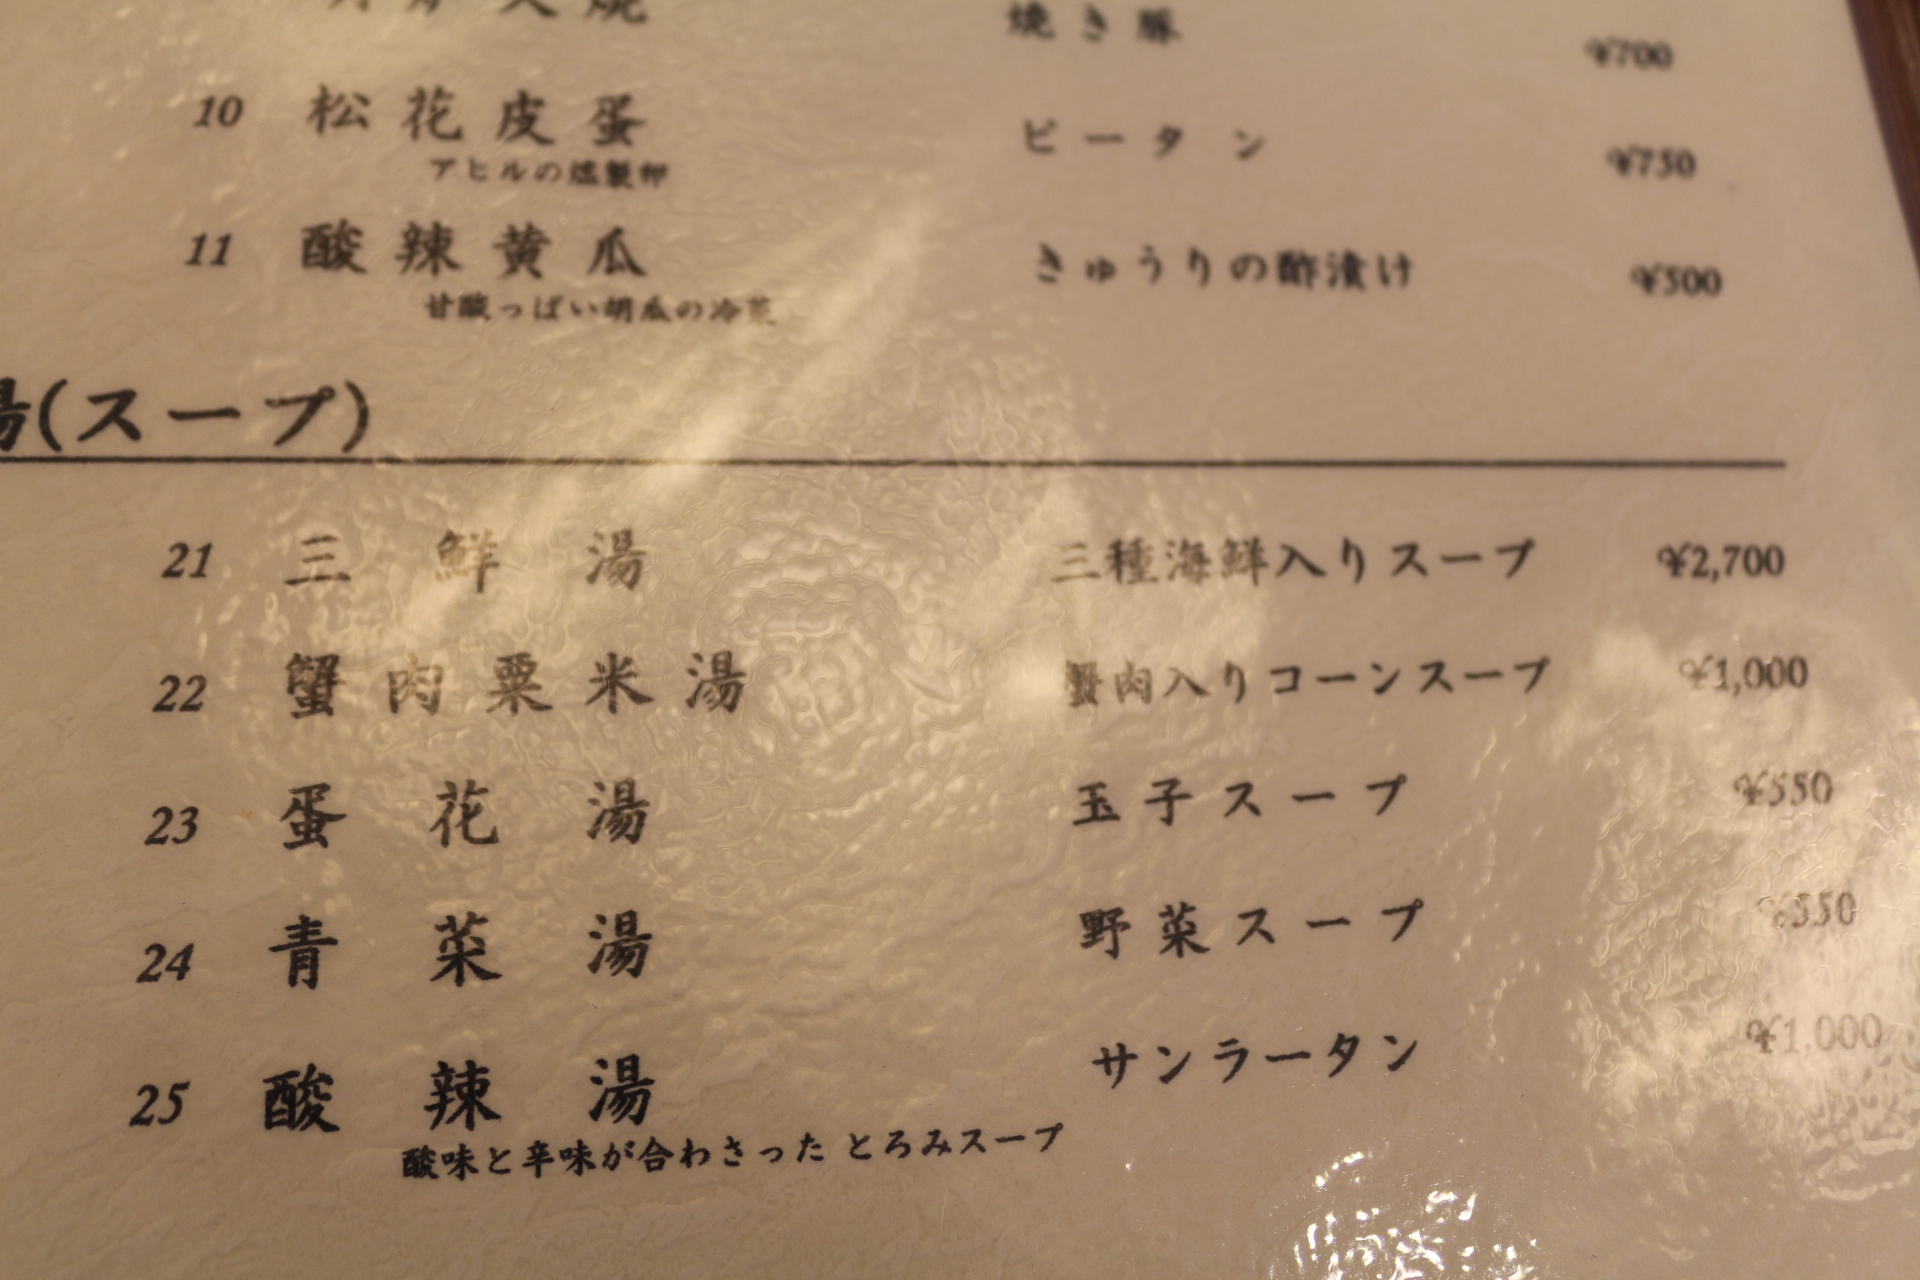 焼き豚 ¥700
10 松花皮蛋 ピータン ¥750
アヒルの燻製卵
11 酸辣黄瓜 きゅうりの酢漬け ¥500
甘酸っぱい胡瓜の冷菜
湯(スープ)
21 三鮮湯 三種海鮮入りスープ ¥2,700
22 蟹肉粟米湯 蟹肉入りコーンスープ ¥1,000
23 蛋花湯 玉子スープ ¥550
24 青菜湯 野菜スープ ¥550
25 酸辣湯 サンラータン ¥1,000
酸味と辛味が合わさった とろみスープ